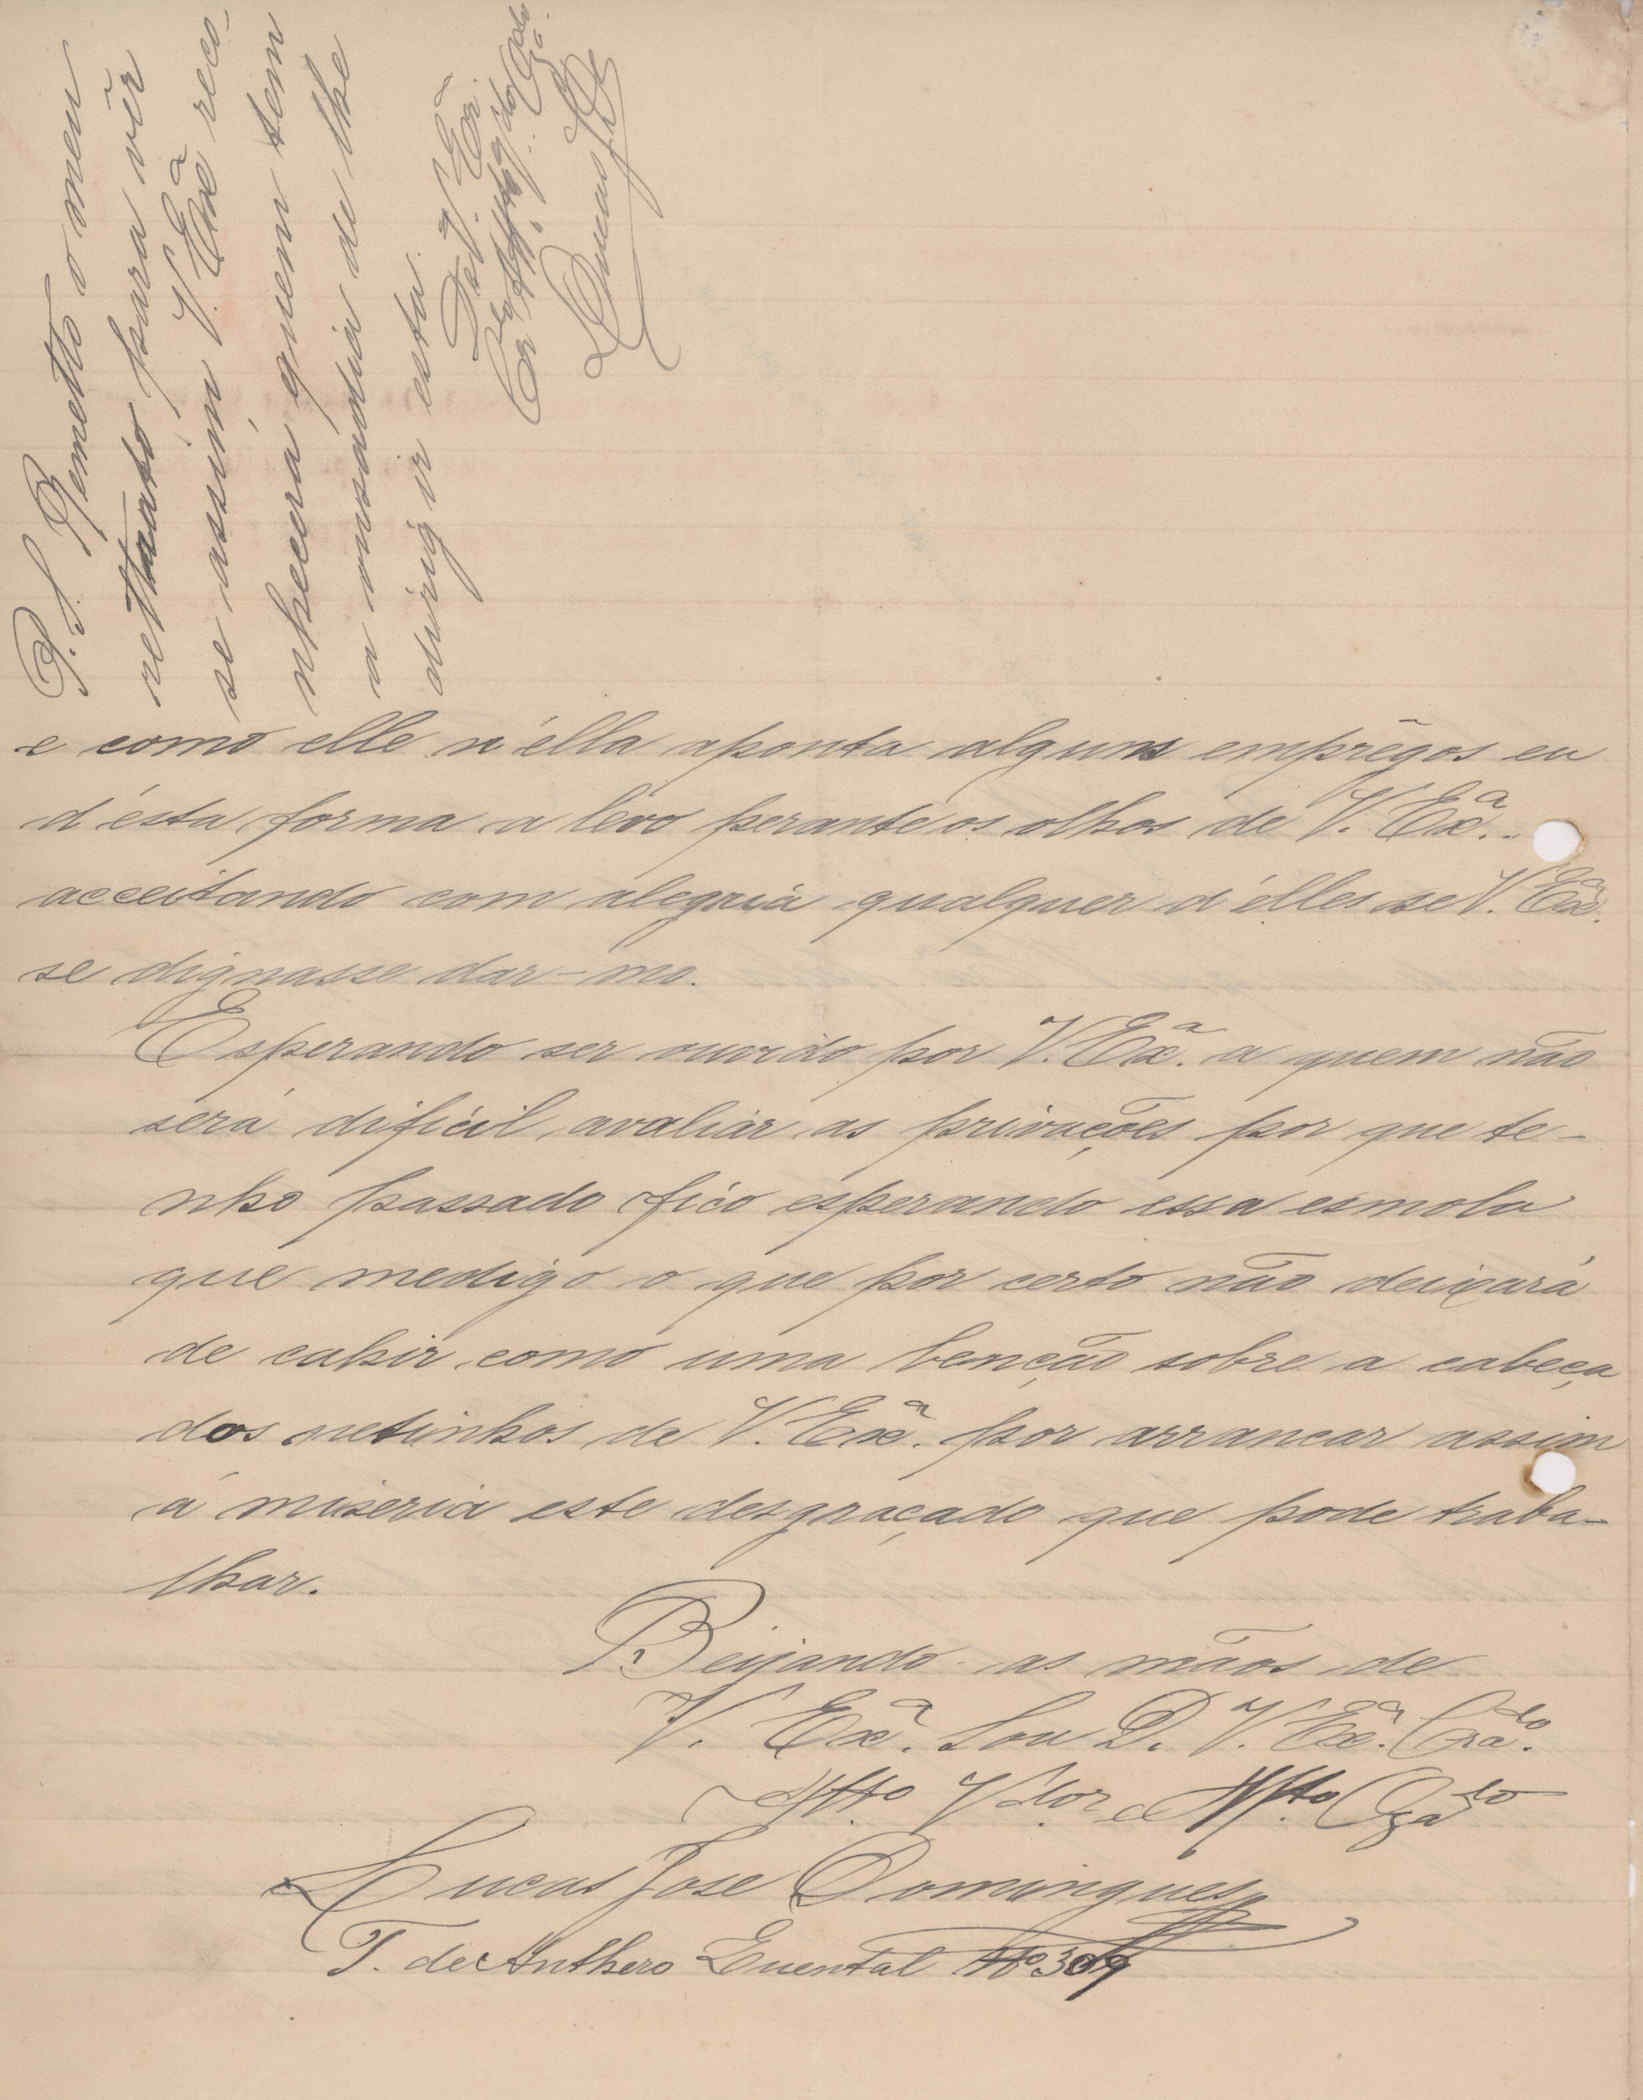 e como elle n'ella aponta alguns emprêgos eu
d'ésta forma a lévo perante os olhos de V. Exª..
acceitando com alegria qualquer d'élles se V. Exª.
se dignasse dar-mo.
Esperando ser ouvido por V. Exª. a quem não
será dificil avaliar as privações por que te-
nho passado fico esperando essa esmola
que medigo o que por certo não deixará
de cahir como uma benção sobre a cabeça
dos netinhos de V. Exª. por arrancar assim
á miseria este desgraçado que pode traba-
lhar.
Beijando as mãos de
V. Exª. Sou D. V. Exª. Crdo.
Atto. Vdor. e Mto Ogado
Lucas José Domingues
T. de Anthero Quental Nº 309
P. S. Remetto o meu
rettrato para vêr
se assim V. Exª reco-
nhecerá quem tem
a ousadia de lhe
dirigir esta.
De V. Exª.
Lucas